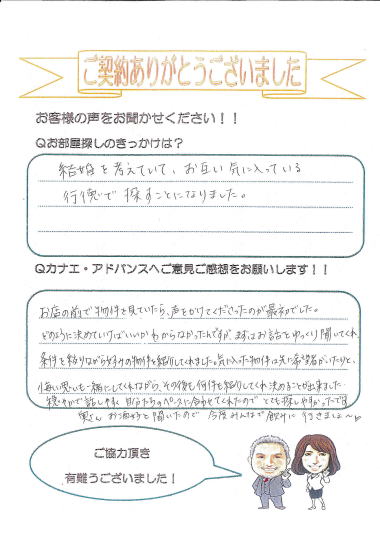 ご契約ありがとうございました
お客様の声をお聞かせください!!
Qお部屋探しのきっかけは?
結婚を考えていて、お互い気に入っている
行徳で探すことになりました。
Qカナエ・アドバンスへご意見ご感想をお願いします!!
お店の前で物件を見ていたら、声をかけてくださったのが最初でした。
どのように決めていけばいいかわからなかったんですが、まずはお話をゆっくり聞いてくれ、
条件を絞りながら好みの物件を紹介してくれました。気に入った物件は先に希望者がいたりと、
悔しい思いも一緒にしてくれながら、その後も何件も紹介してくれ決めることが出来ました。
穏やかで話しやすく自分たちのペースに合わせてくれたのでとても探しやすかったです
奥さんお酒好きと聞いたので今度みんなで飲みに行きましょ〜
ご協力頂き
有難うございました!